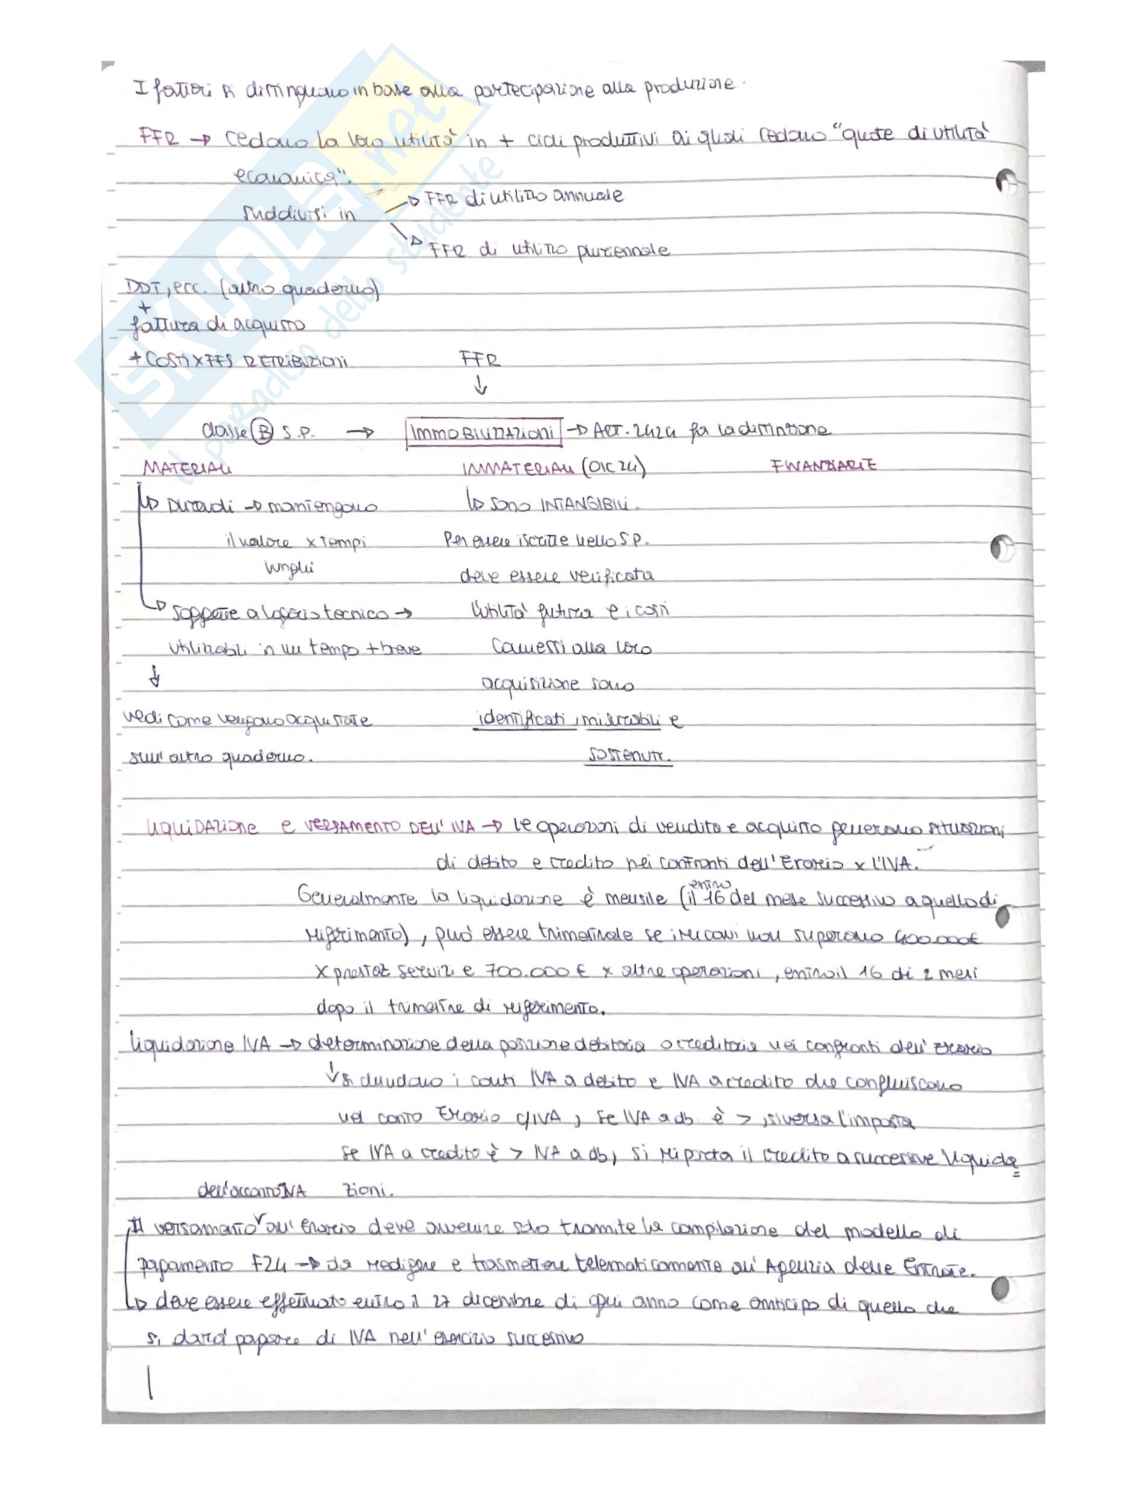 I fattori si distinguono in base alla partecipazione alla produzione.
FFR → cedono la loro utilità in + cicli produttivi ai quali cedono "quote di utilità
economica".
suddivisi in → FFR di utilizzo annuale
→ FFR di utilizzo pluriennale
DDT, ecc. (altro quaderno)
+
fattura di acquisto
+ COSTI x FFS RETRIBUZIONI FFR
↓
classe B S.P. → IMMOBILIZZAZIONI → ART. 2424 fa la distinzione
MATERIALI IMMATERIALI (OIC 24) FINANZIARIE
↳ Durevoli → mantengono ↳ sono INTANGIBILI.
il valore x tempi Per essere iscritte nello S.P.
lunghi deve essere verificata
↳ soggette a logorio tecnico → l'utilità futura e i costi
utilizzabili in un tempo + breve connessi alla loro
↓ acquisizione sono
vedi come vengono acquistate identificati, misurabili e
sull'altro quaderno. sostenuti.
LIQUIDAZIONE E VERSAMENTO DELL'IVA → Le operazioni di vendita e acquisto generano situazioni
di debito e credito nei confronti dell'Erario x l'IVA.
Generalmente la liquidazione è mensile (entro il 16 del mese successivo a quello di
riferimento), può essere trimestrale se i ricavi non superano 400.000€
x prestaz servizi e 700.000 € x altre operazioni, entro il 16 di 2 mesi
dopo il trimestre di riferimento.
Liquidazione IVA → determinazione della posizione debitoria o creditoria nei confronti dell'Erario
↓ si chiudono i conti IVA a debito e IVA a credito che confluiscono
nel conto Erario c/IVA, se IVA a db è >, si versa l'imposta
se IVA a credito è > IVA a db, si riporta il credito a successive liquida
zioni.
dell'acconto IVA
Il versamento all'Erario deve avvenire solo tramite la compilazione del modello di
pagamento F24 → da redigere e trasmettere telematicamente all'Agenzia delle Entrate.
↳ deve essere effettuato entro il 27 dicembre di ogni anno come anticipo di quello che
si dovrà pagare di IVA nell'esercizio successivo
SKUOLA.net
il paradiso dello studente